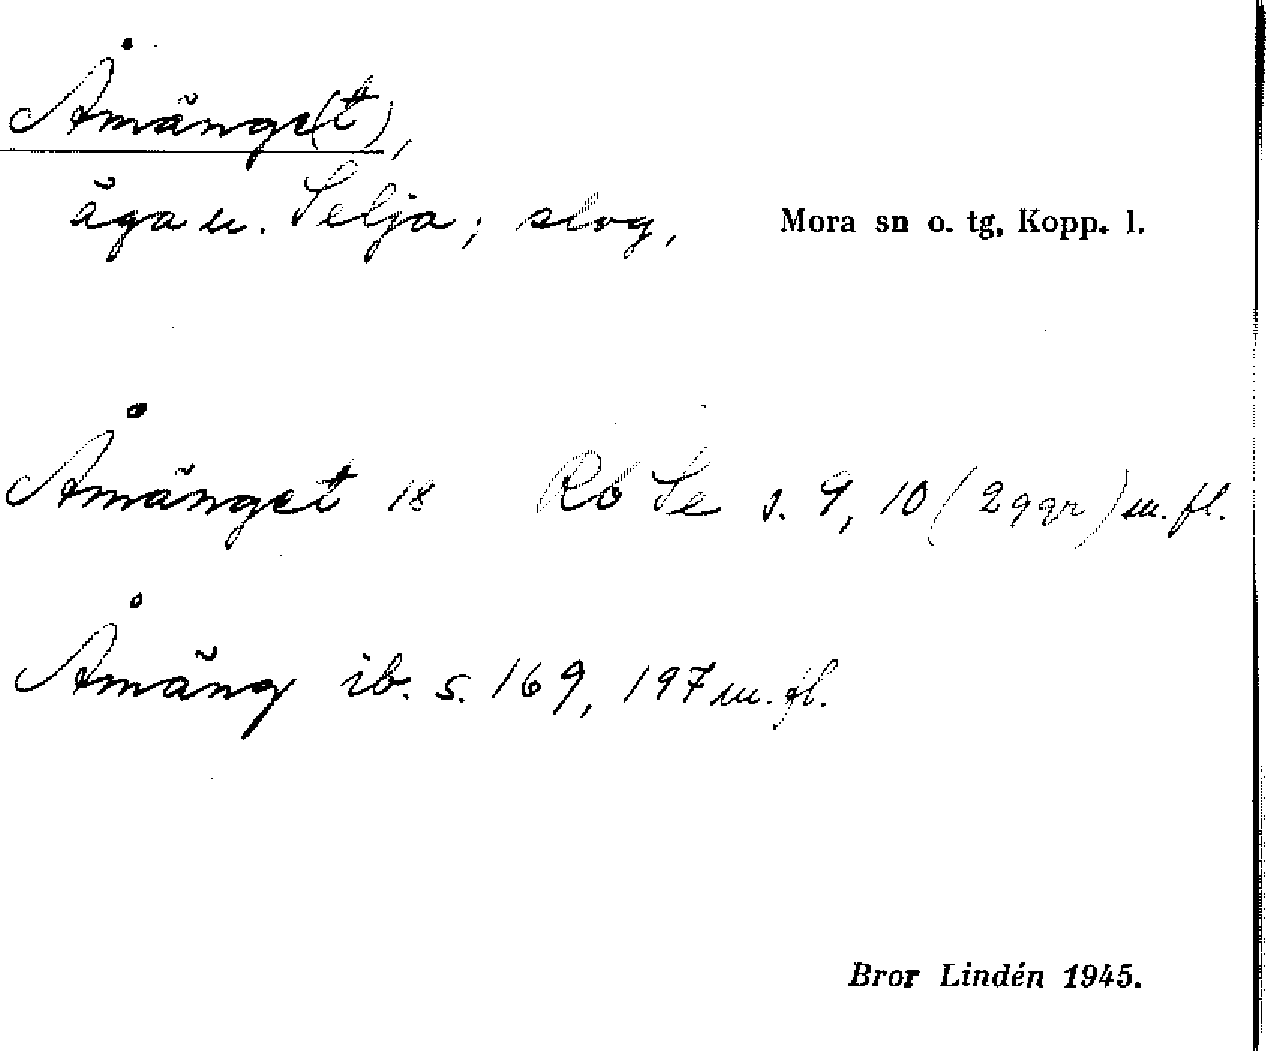 Åmänge(t),
äga u. Selja; slog, Mora sn o. tg, Kopp. l.
Åmänget 18 Rö Se s. 9, 10 (2 ggr) m. fl.
Åmäng ib. s. 169, 197 m. fl.
Bror Lindén 1945.